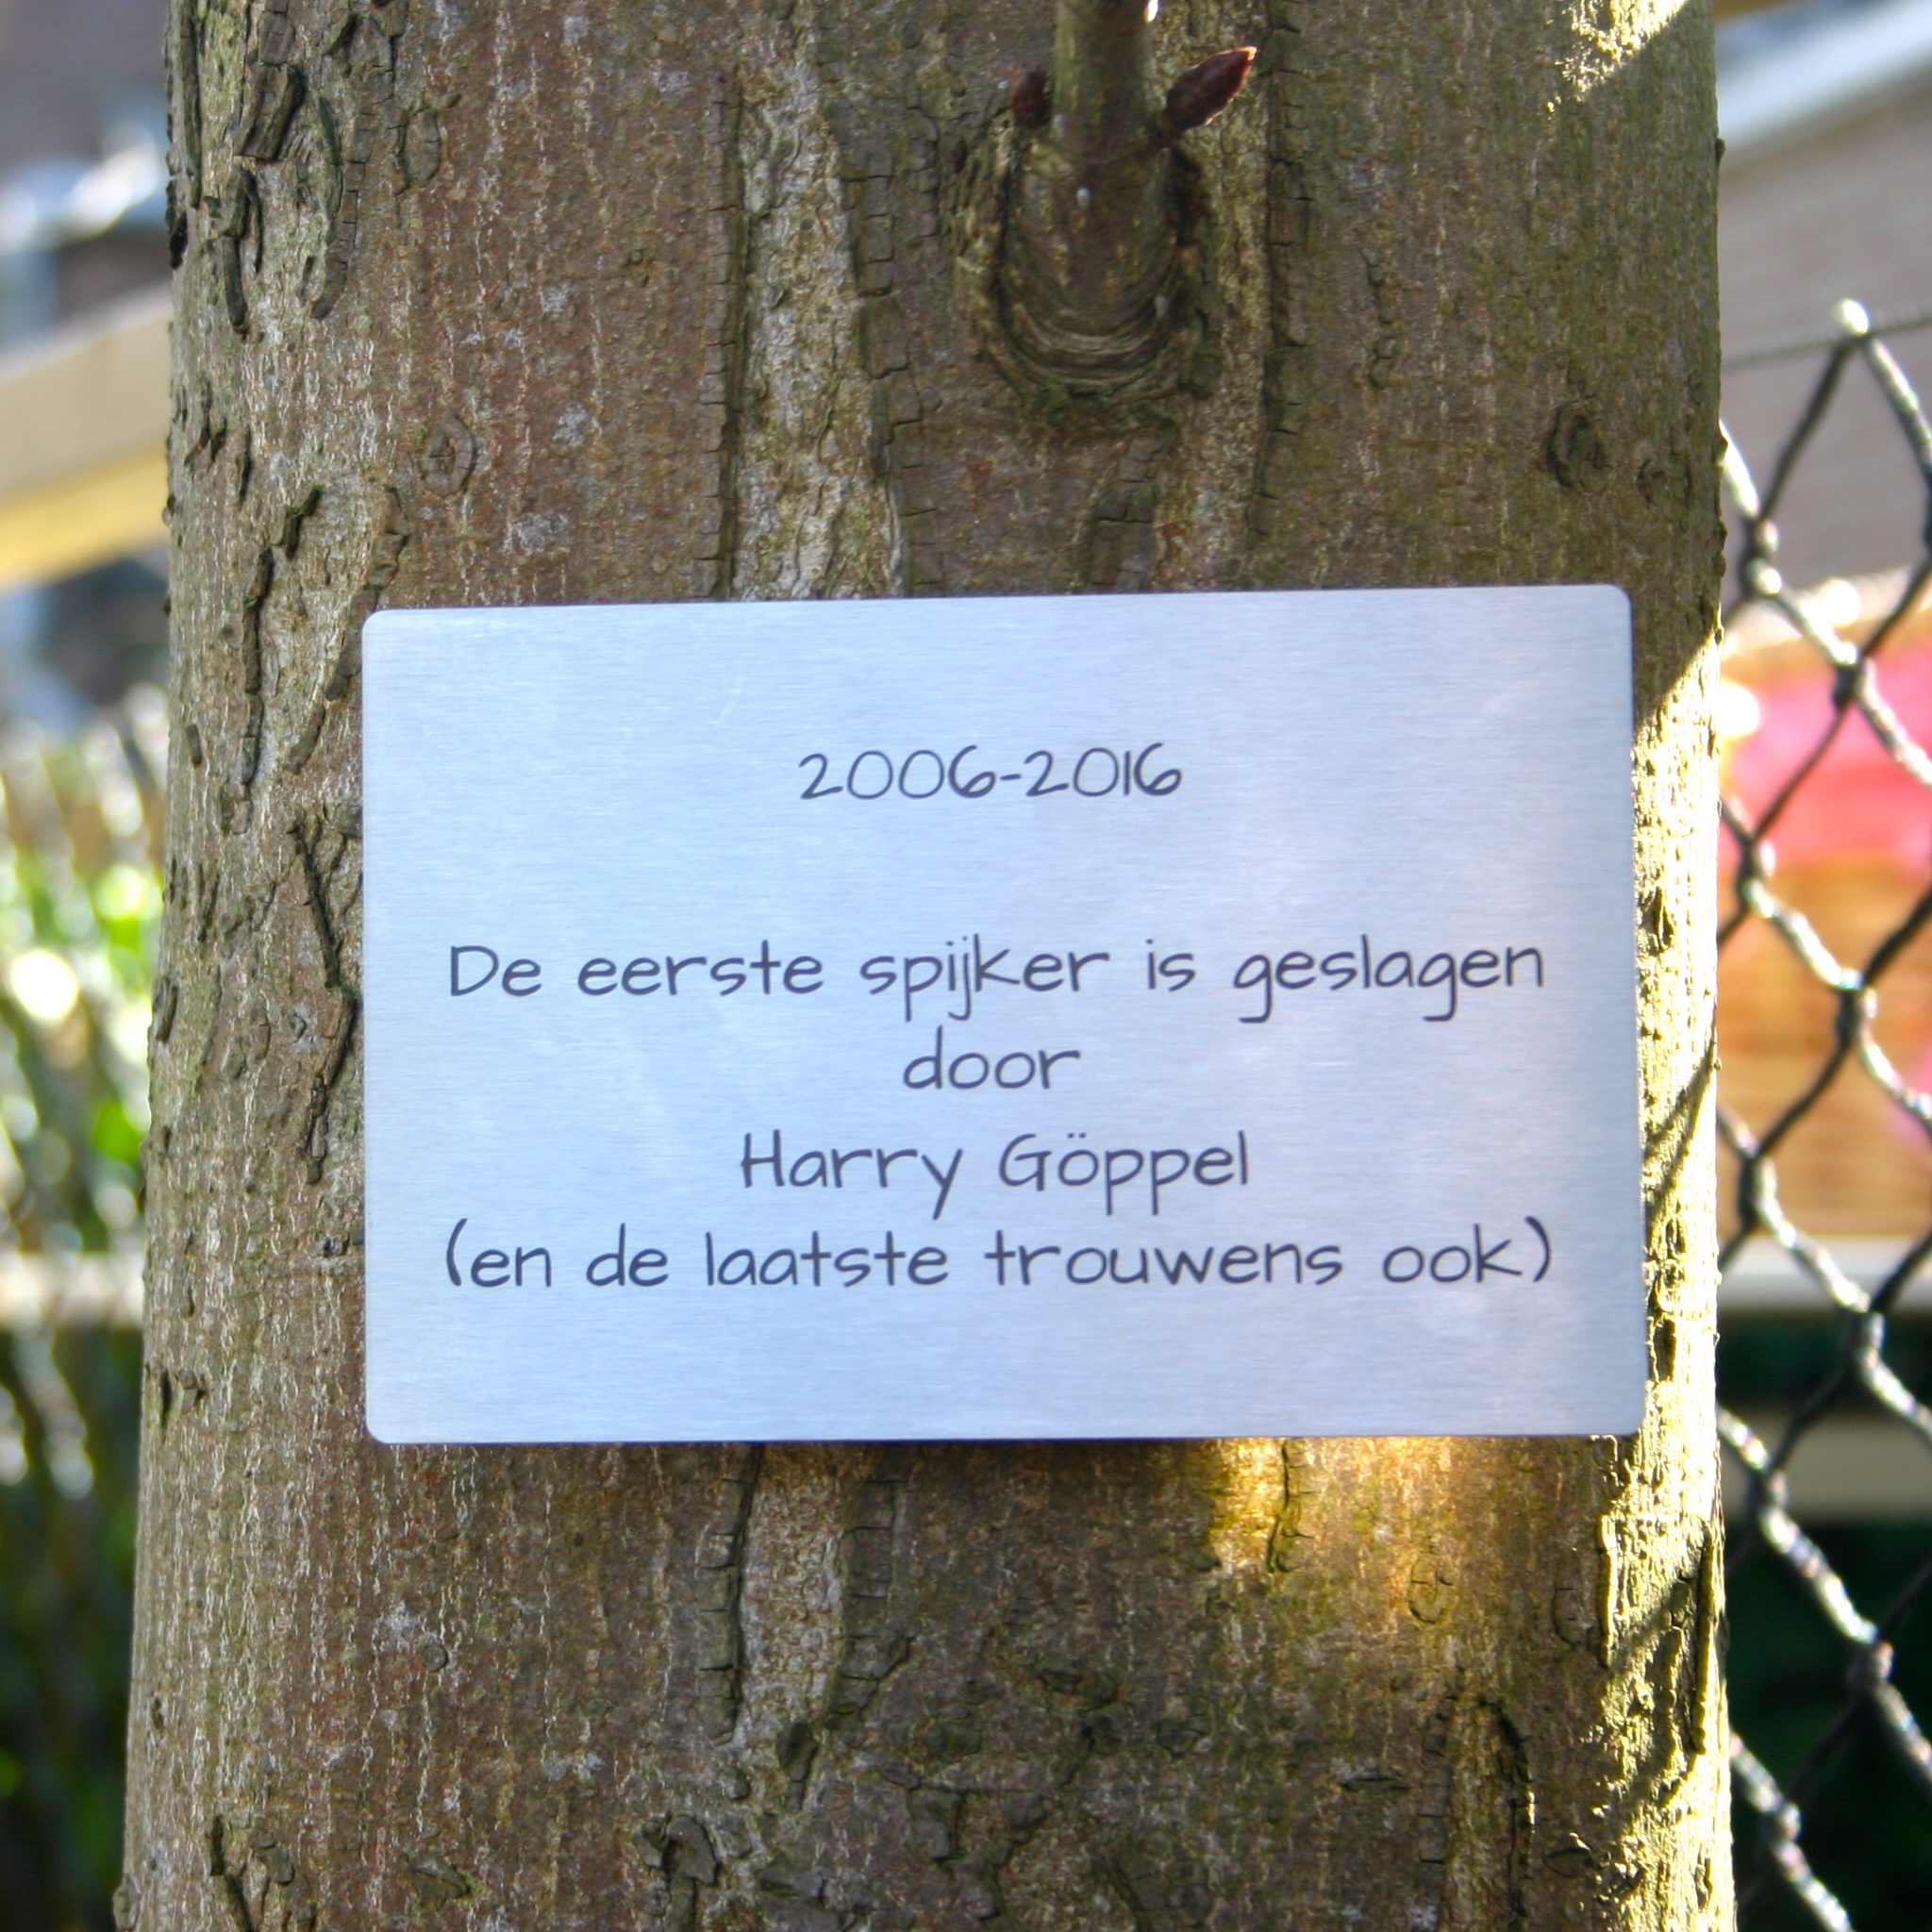 2006-2016
De eerste spijker is geslagen
door
Harry Göppel
(en de laatste trouwens ook)